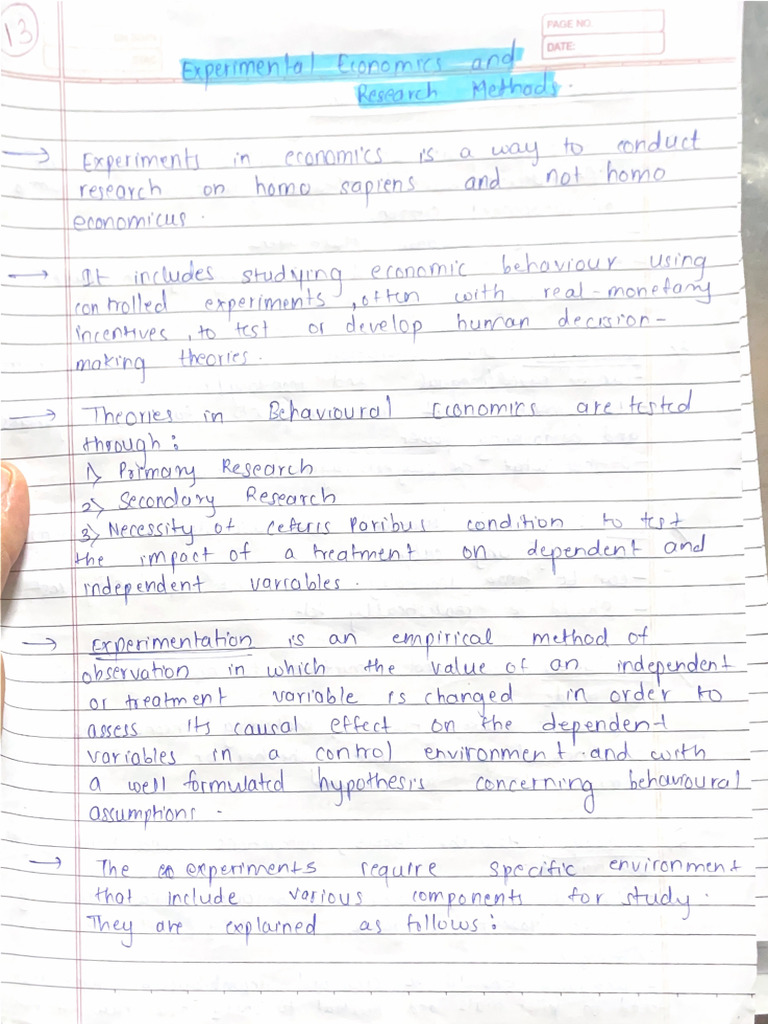 13
PAGE NO.
DATE:
Experimental Economics and
Research Methods.
→ Experiments in economics is a way to conduct
research on homo sapiens and not homo
economicus.
→ It includes studying economic behaviour using
controlled experiments, often with real-monetary
incentives, to test or develop human decision-
making theories.
→ Theories in Behavioural Economics are tested
through:
1> Primary Research
2> Secondary Research
3> Necessity of ceteris paribus condition to test
the impact of a treatment on dependent and
independent variables.
→ Experimentation is an empirical method of
observation in which the value of an independent
or treatment variable is changed in order to
assess its causal effect on the dependent
variables in a control environment and with
a well formulated hypothesis concerning behavioural
assumptions.
→ The experiments require specific environment
that include various components for study.
They are explained as follows: